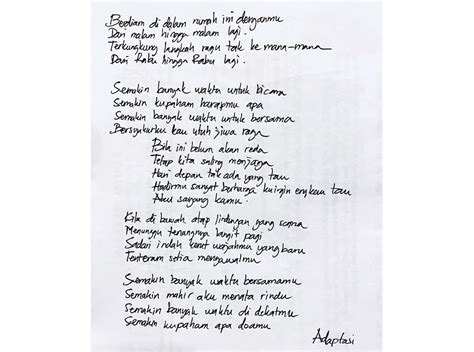 Berdiam di dalam rumah ini denganmu
Dari malam hingga malam lagi.
Terkungkung langkah ragu tak ke mana-mana
Dari Rabu hingga Rabu lagi.
Semakin banyak waktu untuk bicara
Semakin kupaham harapmu apa
Semakin banyak waktu untuk bersama
Bersyukurku kau utuh jiwa raga
Bila ini belum akan reda
Tetap kita saling menjaga
Hari depan tak ada yang tau
Hadirmu sangat berharga kuingin engkau tau
Aku sayang kamu.
Kita di bawah atap lindungan yang sama
Menunggu tenangnya langit pagi
Sadari indah kerut wajahmu yang baru
Tenteram setia mengawalmu
Semakin banyak waktu bersamamu
Semakin mahir aku menata rindu
Semakin banyak waktu di dekatmu
Semakin kupaham apa doamu
Adaptasi